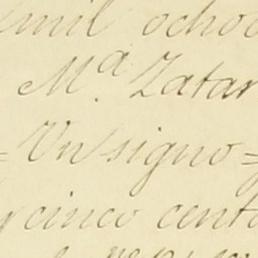 mil ocho
M.ª Zatar
=Un signo=
y cinco cent